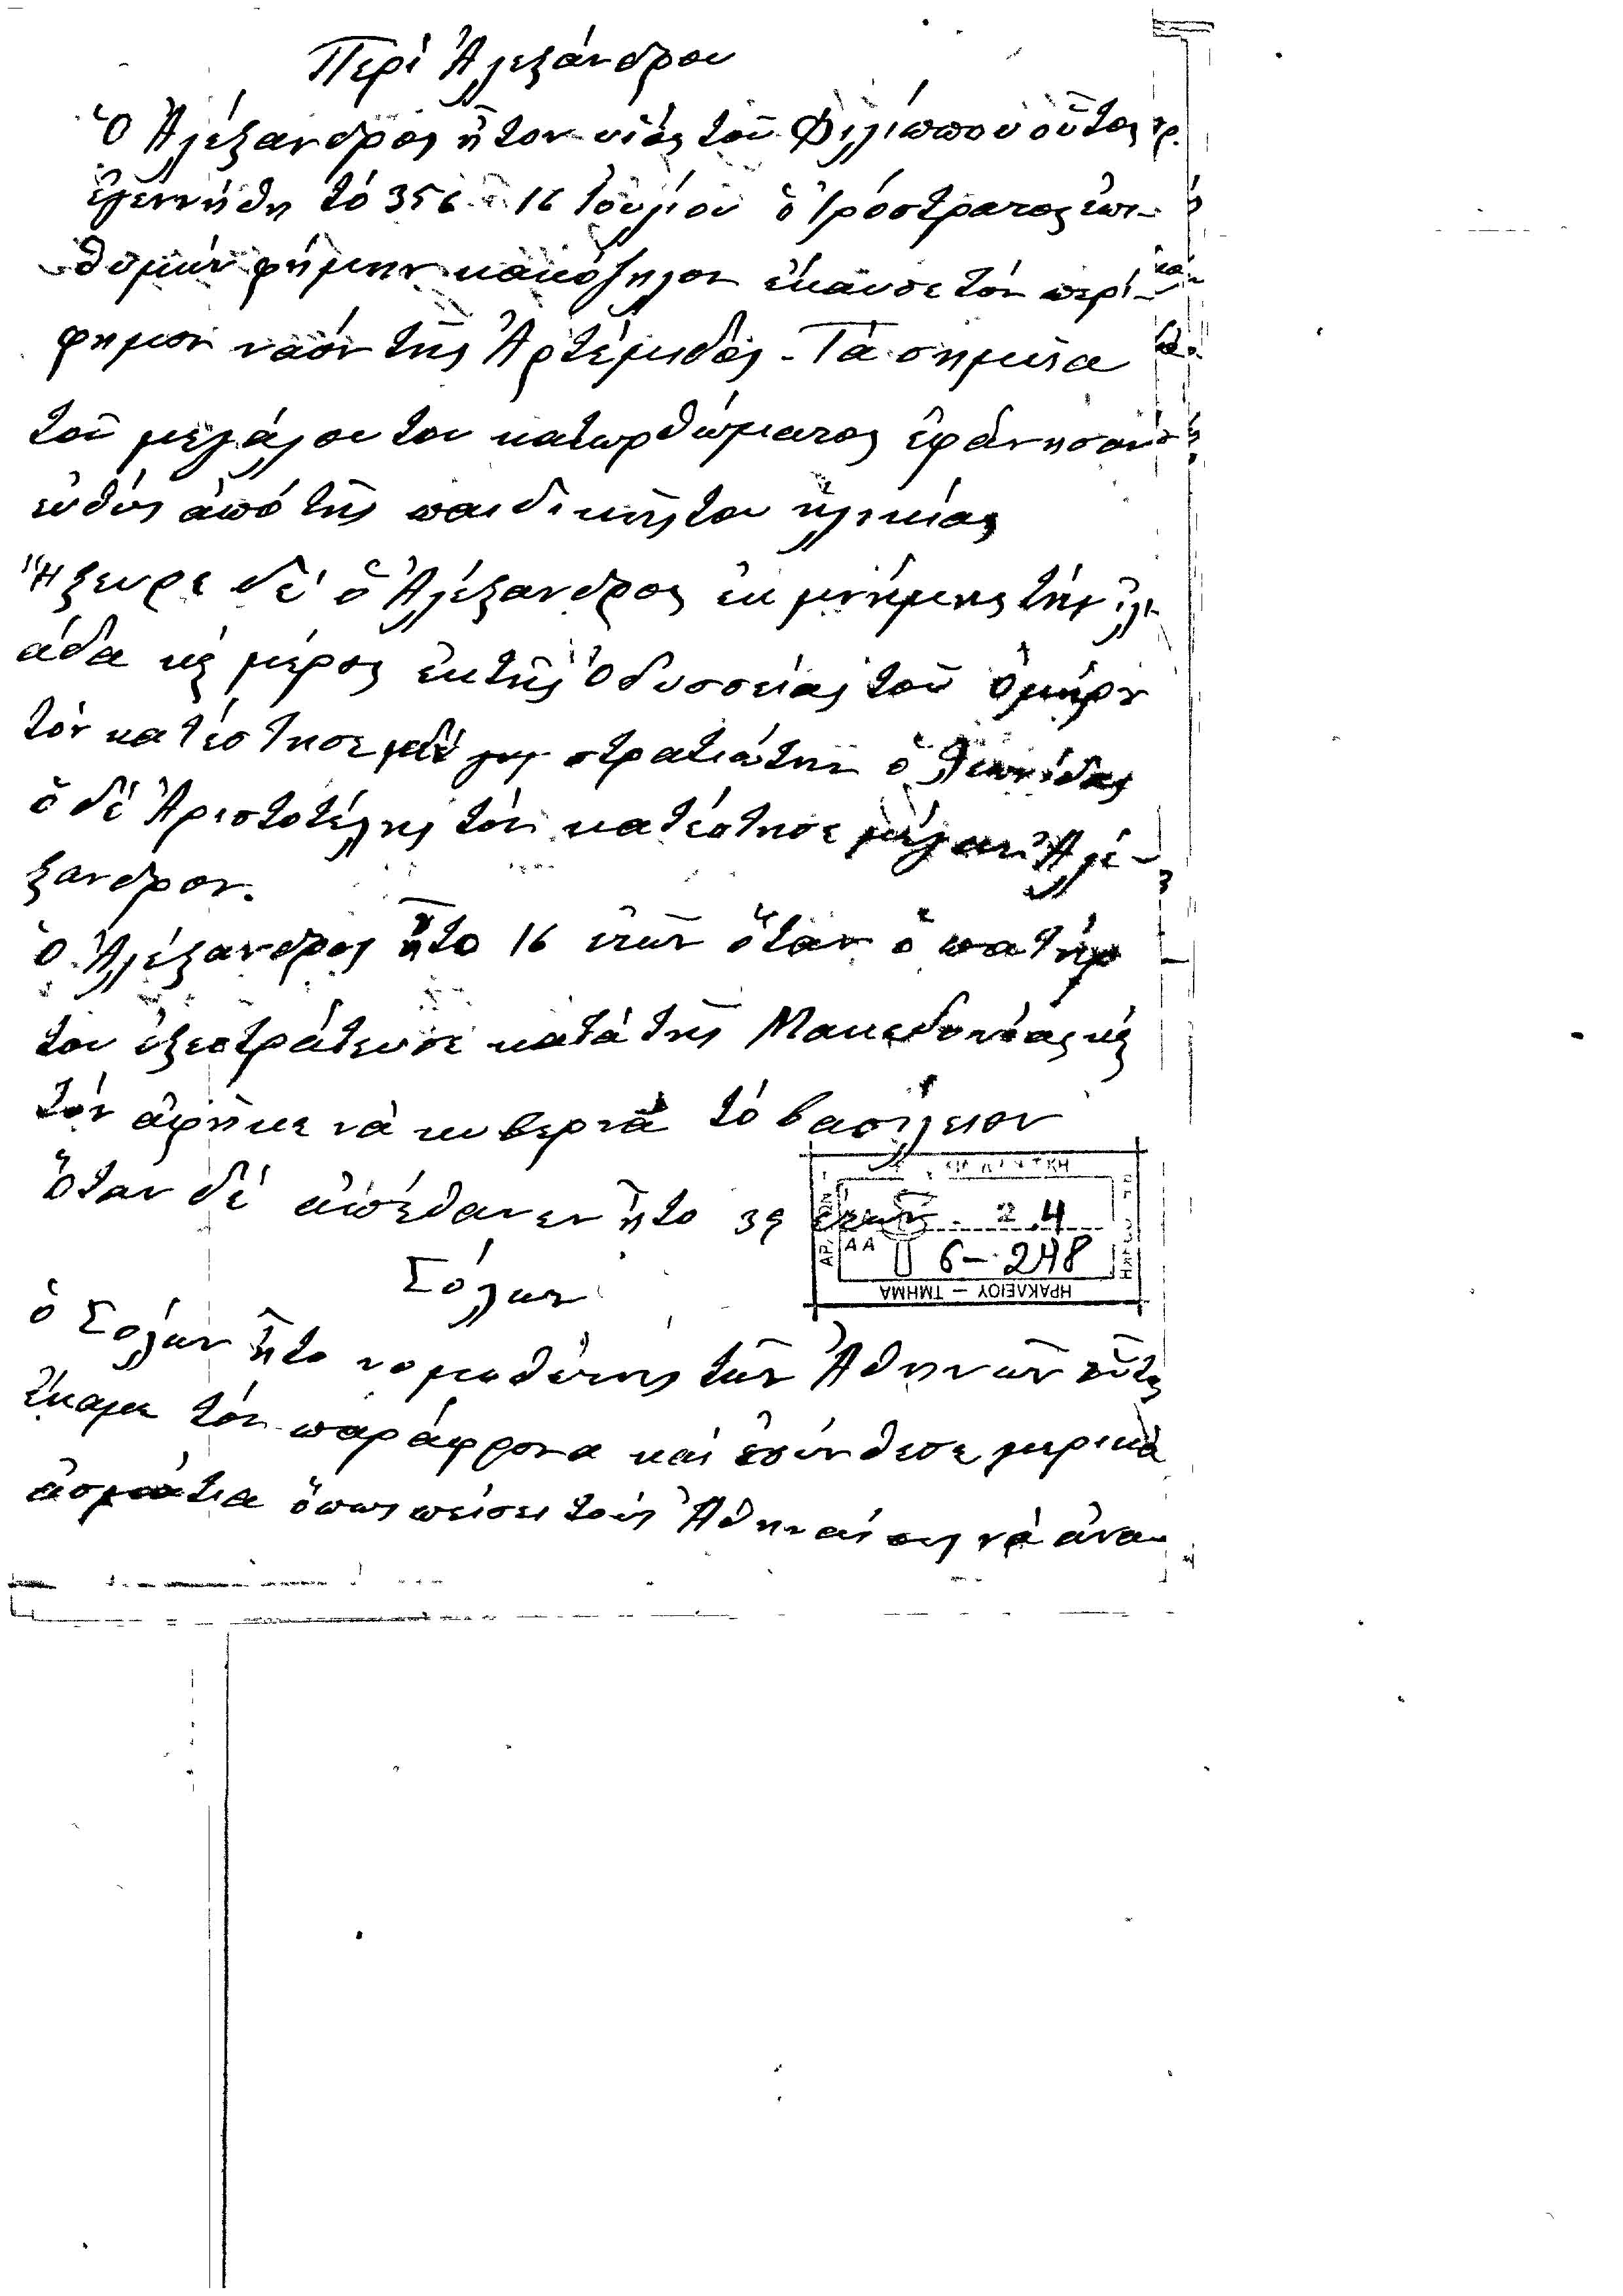 Περὶ Ἀλεξάνδρου
Ὁ Ἀλέξανδρος ἦτον υἱός τοῦ Φιλίππου οὗτος
ἐγεννήθη τό 356 16 Ἰουλίου ὁ Ἡρόστρατος ἐπι-
θυμῶν φήμην κακόζηλον ἔκαυσε τόν περί-
φημον ναόν τῆς Ἀρτέμιδος - Τὰ σημεῖα
τοῦ μεγάλου του κατωρθώματος ἐφάνησαν
εὐθύς ἀπό τῆς παιδικῆς του ἡλικίας
Ἤξευρε δέ ὁ Ἀλέξανδρος ἐκ μνήμης τήν ἰλι
άδα κ μέρος ἐκ τῆς Ὀδυσσείας τοῦ Ὁμήρου
τόν κατέστησε στρατιώτην ὁ Λεωνίδας
ὁ δέ Ἀριστοτέλης τόν κατέστησε μέγαν Ἀλέ-
ξανδρον.
Ὁ Ἀλέξανδρος ἦτο 16 ἐτῶν ὅταν ὁ πατήρ
του ἐξεστράτευσε κατά τῆς Μακεδονίας κ
τόν ἀφῆκε νὰ κυβερνᾶ τό βασίλειον
Ὅταν δέ ἀπέθανεν ἦτο 39 ἐτῶν
2 4
ΑΑ 6-248
ΗΡΑΚΛΕΙΟΥ — ΤΜΗΜΑ
Σόλων
ὁ Σόλων ἦτο νομοθέτης τῶν Ἀθηνῶν οὗτος
ἔκαμε τόν παράφρονα καί ἐσύνθεσε μερικὰ
ἀσμάτια ὅπως πείσει τούς Ἀθηναίους νά ἀνα-